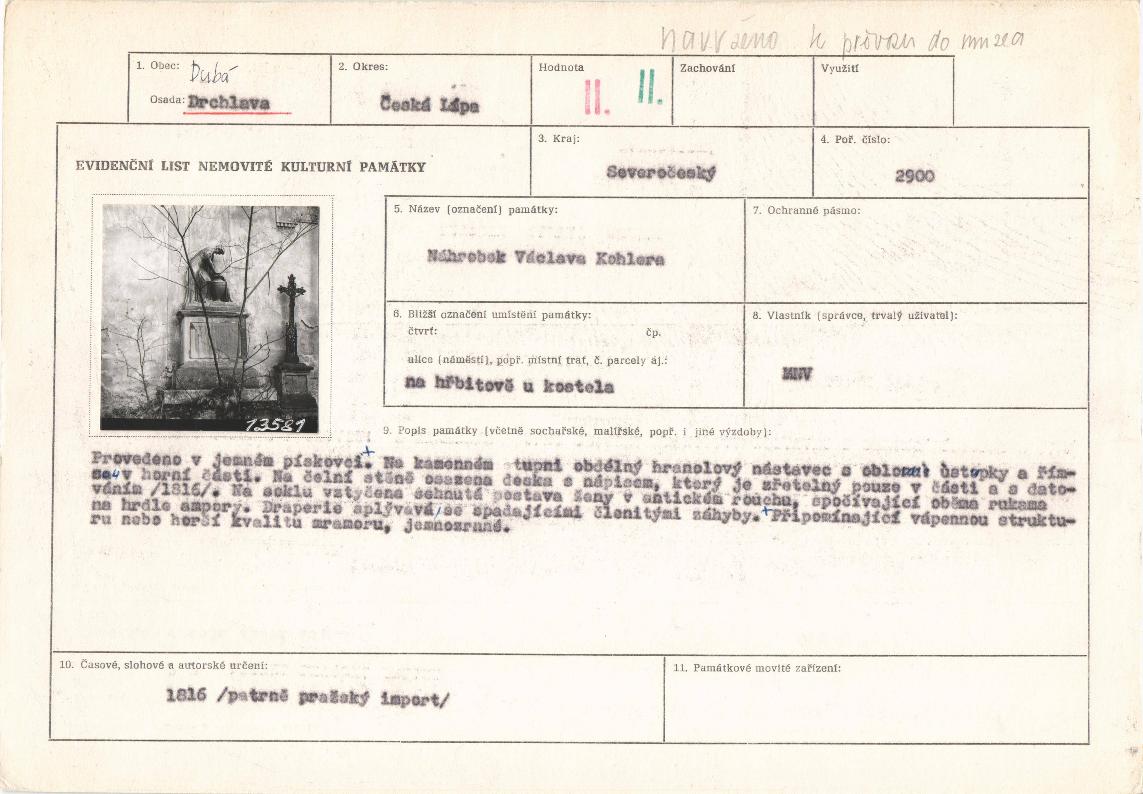 navrženo k převozu do muzea
1. Obec: Dubá
Osada: Drchlava
2. Okres:
Česká Lípa
Hodnota
II. II.
Zachování
Využití
EVIDENČNÍ LIST NEMOVITÉ KULTURNÍ PAMÁTKY
3. Kraj:
Severočeský
4. Poř. číslo:
2900
13581
5. Název (označení) památky:
Náhrobek Václava Kohlera
7. Ochranné pásmo:
6. Bližší označení umístění památky:
čtvrť: čp.
ulice (náměstí), popř. místní trať, č. parcely aj.:
na hřbitově u kostela
8. Vlastník (správce, trvalý uživatel):
MNV
9. Popis památky (včetně sochařské, malířské, popř. i jiné výzdoby):
Provedeno v jemném pískovci.+ Na kamenném stupni obdélný hranolový nástavec s oblouat ústupky a řím-
sou v horní části. Na čelní stěně osazena deska s nápisem, který je zřetelný pouze v části a s dato-
váním /1816/. Na soklu vztyčena sehnutá postava ženy v antickém rouchu, spočívající oběma rukama
na hrdle ampory. Draperie splývavá/se spadajícími členitými záhyby. +Připomínající vápennou struktu-
ru nebo horší kvalitu mramoru, jemnozrnné.
10. Časové, slohové a autorské určení:
1816 /patrně pražský import/
11. Památkové movité zařízení: